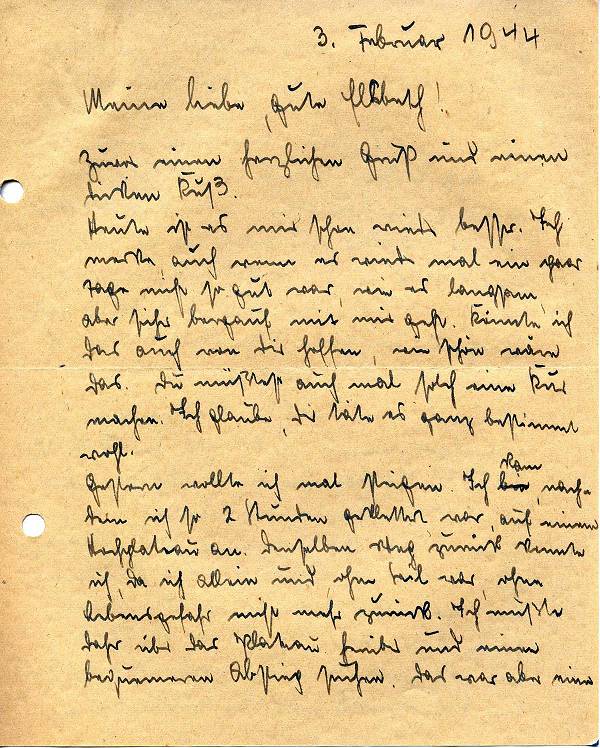 3. Februar 1944
Meine liebe, gute Elsbeth!
Zuerst einen herzlichen Gruß und einen
dicken Kuß.
Heute ist es mir schon wieder besser. Ich
merke, auch wenn es wieder mal ein paar
Tage nicht so gut war, wie es langsam,
aber sicher bergauf mit mir geht. Könnte ich
das auch von Dir hoffen, wie schön wäre
das. Du müßtest auch mal solch eine Kur
machen. Ich glaube, dir täte es ganz bestimmt
wohl.
Gestern wollte ich mal steigen. Ich kam, nach-
dem ich so 2 Stunden geklettert war, auf einem
Hochplateau an. Denselben Weg zurück konnte
ich, da ich allein und ohne Seil war, ohne
Lebensgefahr nicht mehr zurück. Ich mußte
daher über das Plateau hinüber und einen
bequemeren Abstieg suchen. Das war aber eine